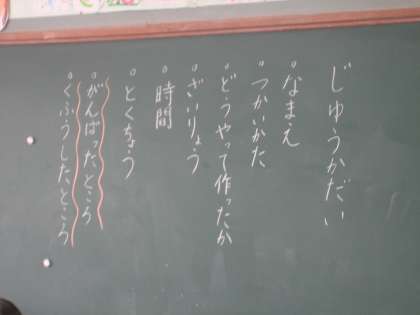 じゆうかだい
。なまえ
。つかいかた
。どうやって作ったか
。ざいりょう
。時間
。とくちょう
。がんばったところ
。くふうしたところ